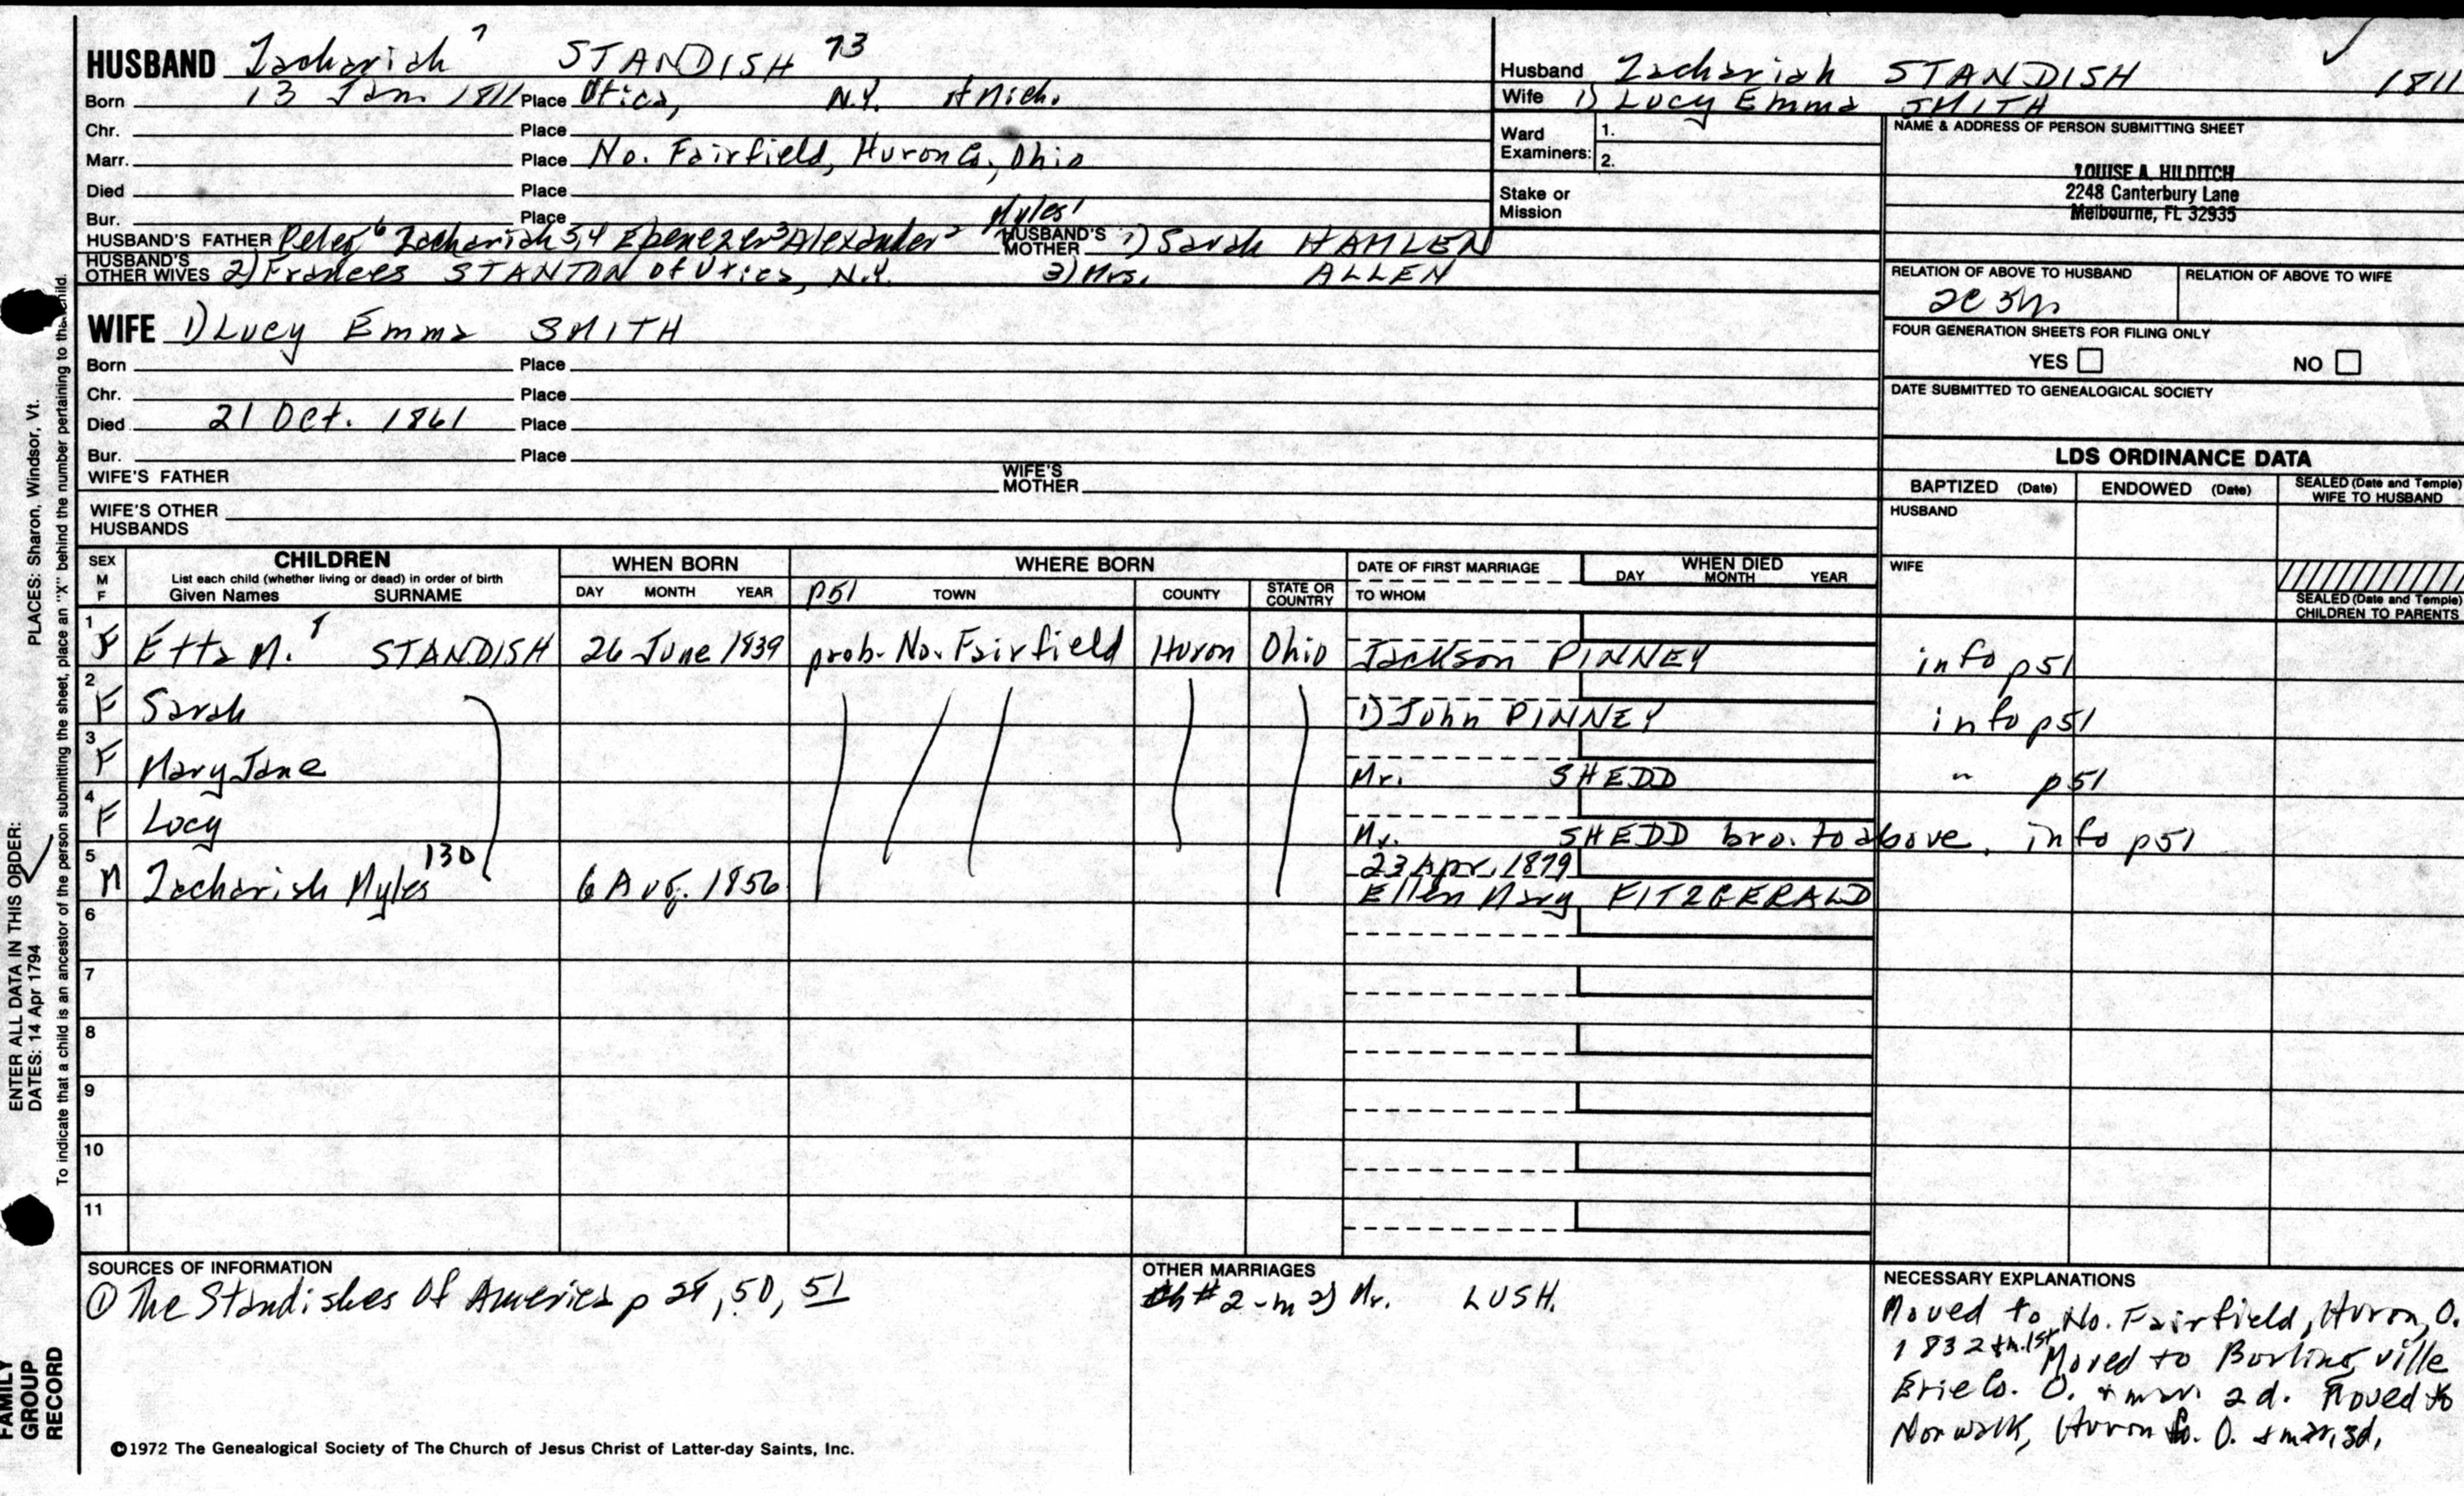 HUSBAND Zachariah 7 STANDISH 73
Born 13 Jan. 1811 Place Utica, N.Y. + Mich.
Chr. Place
Marr. Place No. Fairfield, Huron Co., Ohio
Died Place
Bur. Place Myles1
HUSBAND'S FATHER Peter6 Zachariah5,4 Ebenezer3 Alexander2 HUSBAND'S MOTHER 1) Sarah HAMLEN
HUSBAND'S OTHER WIVES 2) Frances STANTON of Utica, N.Y. 3) Mrs. ALLEN
Husband Zachariah STANDISH 1811
Wife 1) Lucy Emma SMITH
Ward Examiners: 1.
2.
Stake or Mission
NAME & ADDRESS OF PERSON SUBMITTING SHEET
LOUISE A. HILDITCH
2248 Canterbury Lane
Melbourne, FL 32935
RELATION OF ABOVE TO HUSBAND RELATION OF ABOVE TO WIFE
2c 5th
FOUR GENERATION SHEETS FOR FILING ONLY
YES NO
DATE SUBMITTED TO GENEALOGICAL SOCIETY
WIFE 1) Lucy Emma SMITH
Born Place
Chr. Place
Died 21 Oct. 1861 Place
Bur. Place
WIFE'S FATHER WIFE'S MOTHER
WIFE'S OTHER HUSBANDS
LDS ORDINANCE DATA
BAPTIZED (Date) ENDOWED (Date) SEALED (Date and Temple) WIFE TO HUSBAND
HUSBAND
WIFE
SEALED (Date and Temple) CHILDREN TO PARENTS
SEX M F CHILDREN WHEN BORN WHERE BORN DATE OF FIRST MARRIAGE WHEN DIED
List each child (whether living or dead) in order of birth DAY MONTH YEAR
Given Names SURNAME DAY MONTH YEAR p51 TOWN COUNTY STATE OR COUNTRY TO WHOM
1 F Etta M. 8 STANDISH 26 June 1839 prob. No. Fairfield Huron Ohio Jackson PINNEY info p51
2 F Sarah 1) John PINNEY info p51
3 F Mary Jane Mr. SHEDD " p51
4 F Lucy Mr. SHEDD bro. to above. info p51
5 M Zachariah Myles 130 6 Aug. 1856 23 Apr. 1879
Ellen Mary FITZGERALD
6
7
8
9
10
11
SOURCES OF INFORMATION
① The Standishes Of America p 25, 50, 51
OTHER MARRIAGES
ch #2 - m 2) Mr. LUSH.
NECESSARY EXPLANATIONS
Moved to No. Fairfield, Huron, O.
1832 + m. 1st Moved to Burlingville
Erie Co. O. + mar. 2d. Moved to
Norwalk, Huron Co. O. + mar. 3d.
©1972 The Genealogical Society of The Church of Jesus Christ of Latter-day Saints, Inc.
ENTER ALL DATA IN THIS ORDER:
DATES: 14 Apr 1794 PLACES: Sharon, Windsor, Vt.
To indicate that a child is an ancestor of the person submitting the sheet, place an "X" behind the number pertaining to that child.
FAMILY
GROUP
RECORD